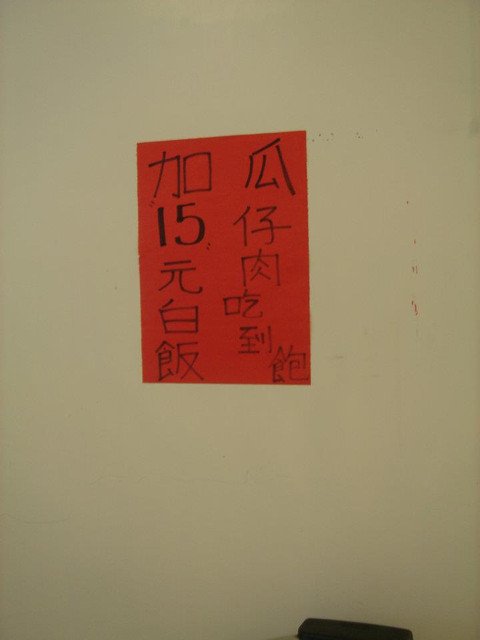 瓜仔肉吃到飽
加"15"元白飯